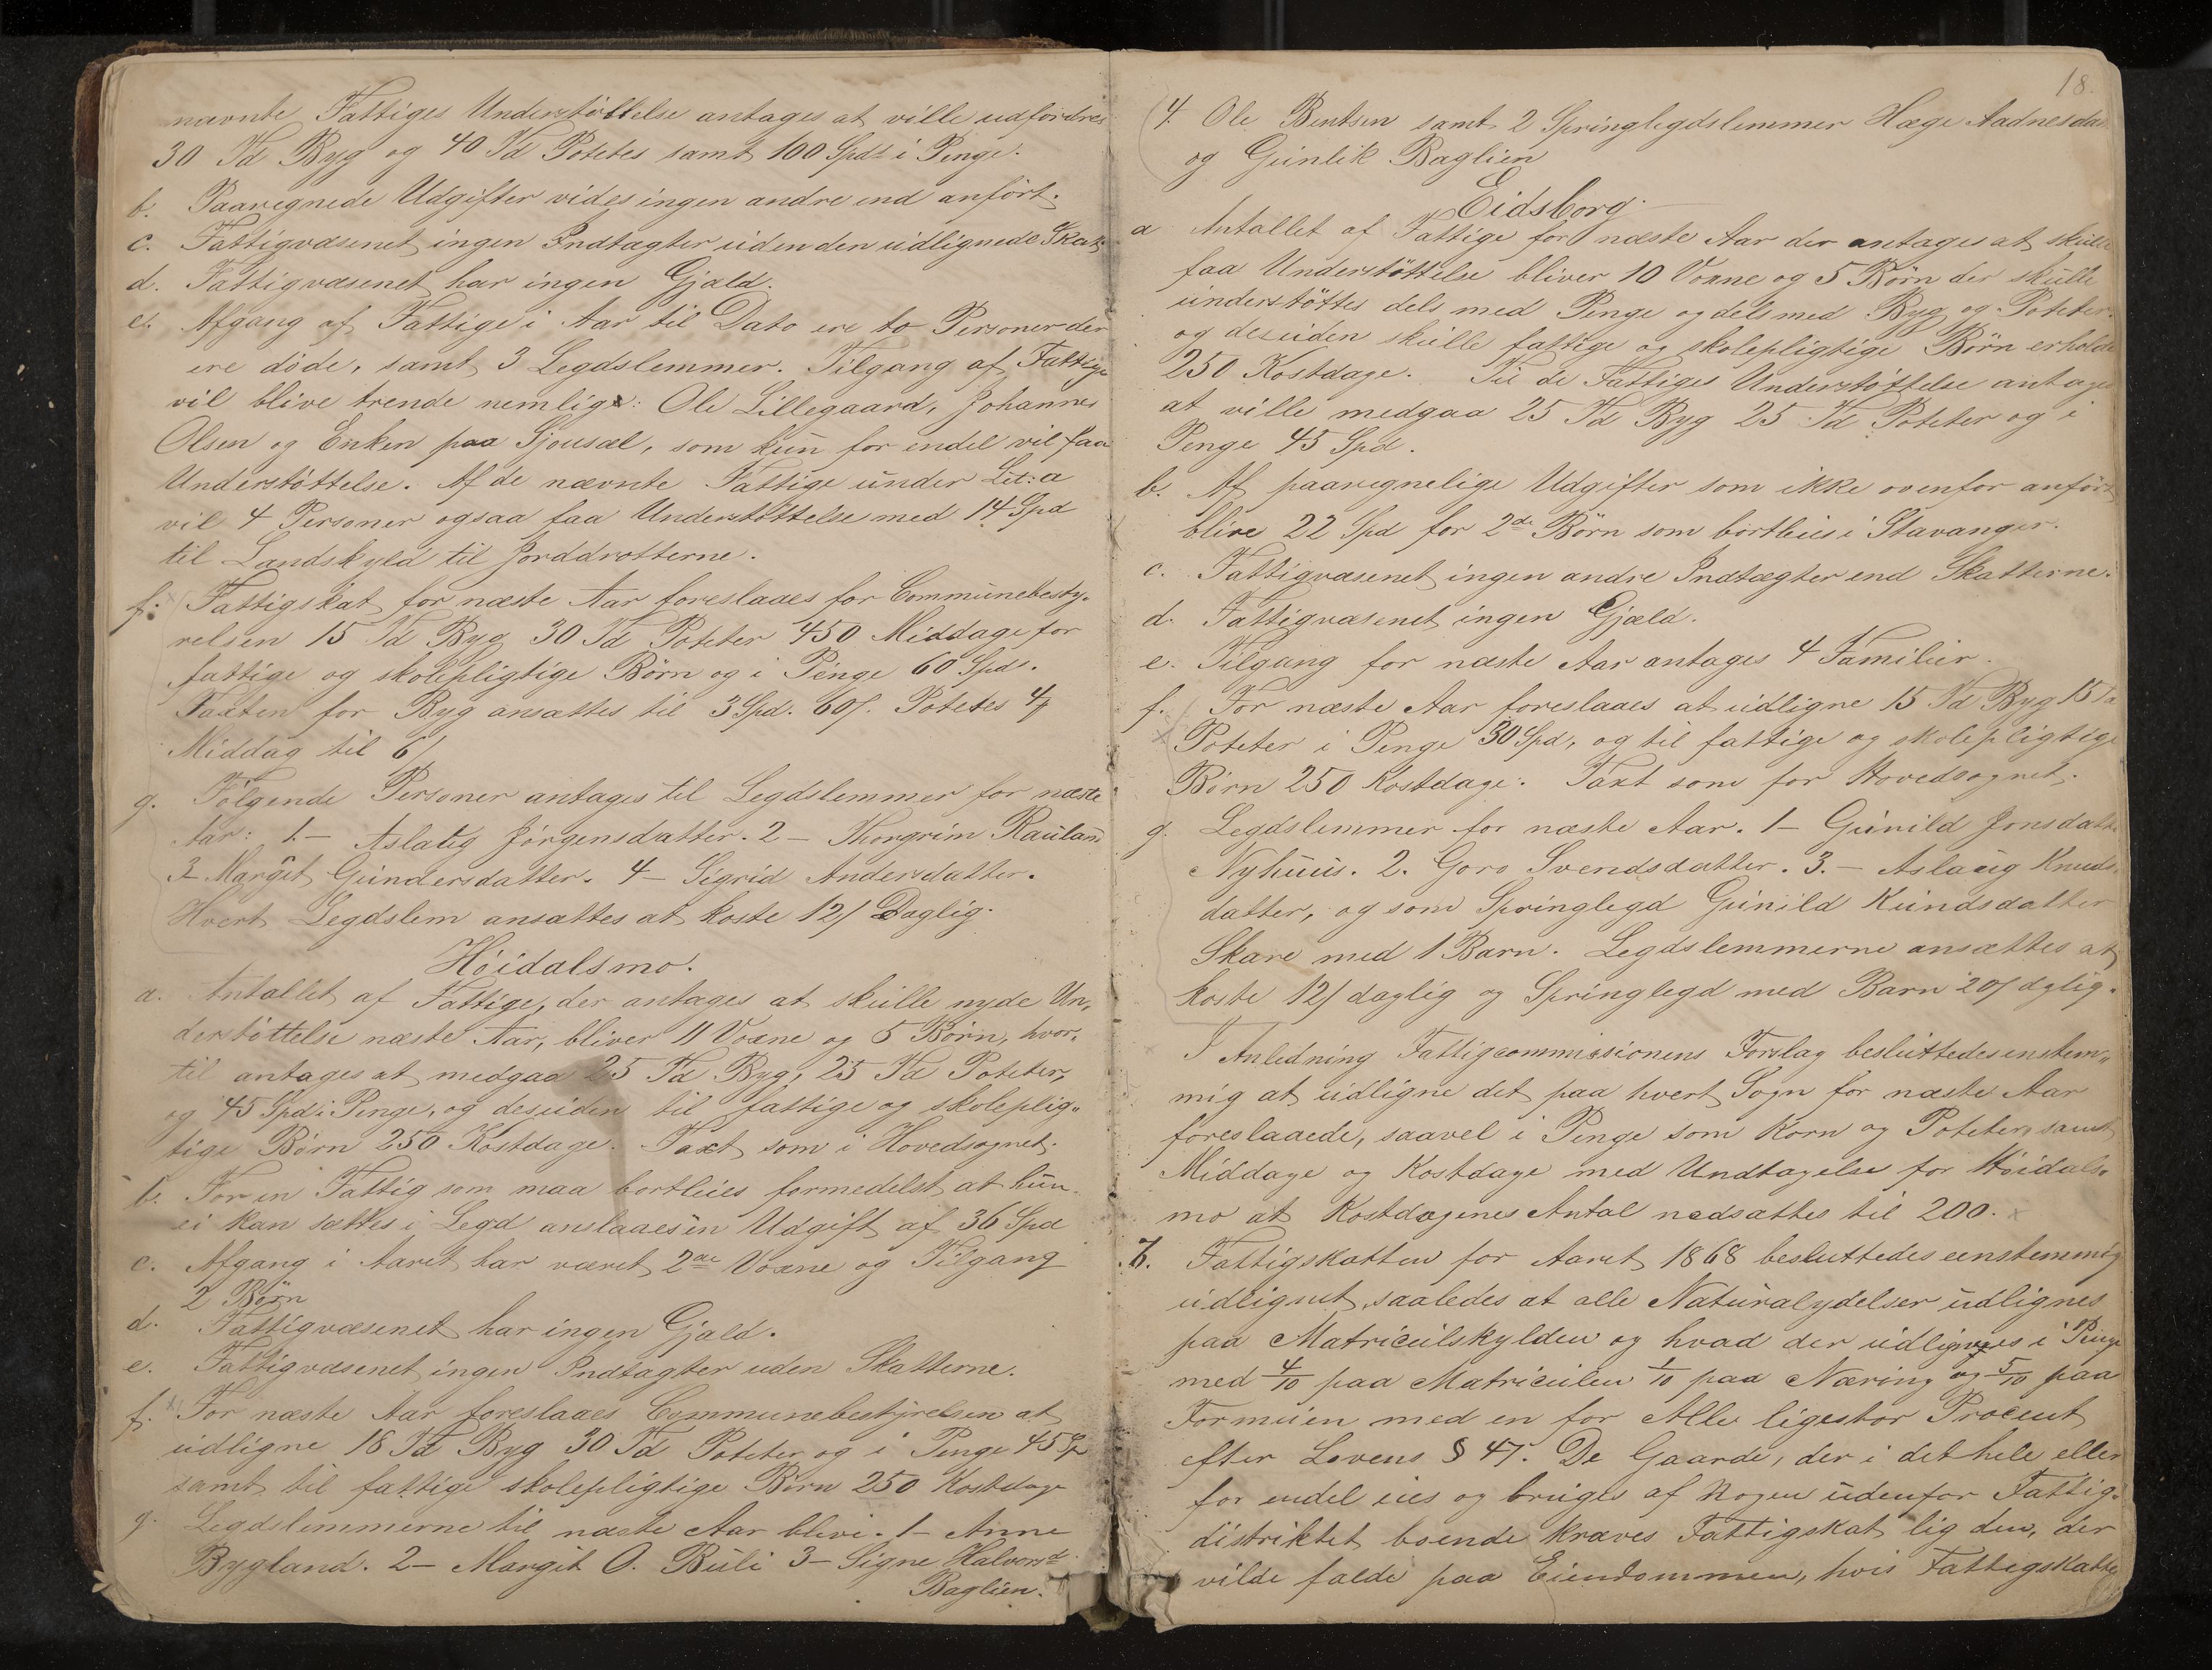 nævnte Fattiges Understöttelse antages at ville udfordres
30 Td Byg og 40 Td Potetes samt 100 Spd i Penge.
b. Paaregnede Udgifter vides ingen andre end anfört.
c. Fattigvæsenet ingen Indtægter uden den udlignede Skat.
d. Fattigvæsenet har ingen Gjæld.
e. Afgang af Fattige i Aar til Dato ere to Personer der
ere döde, samt 3 Legdslemmer. Tilgang af Fattige
vil blive trende nemlig: Ole Lillegaard, Johannes
Olsen og Enken paa Sjousæl, som kun for endel vil faa
Understöttelse. Af de nævnte Fattige under Lit: a
vil 4 Personer ogsaa faa Understöttelse med 14 Spd
til Landskyld til Jorddrotterne.
f: Fattigskat for næste Aar foreslaaes for Communebesty-
relsen 15 Td Byg 30 Td Poteter 450 Middage for
fattige og skolepligtige Börn og i Penge 60 Spd.
Taxten for Byg ansættes til 3 Spd. 60/. Potetes 4/
Middag til 6/
g. Fölgende Personer antages til Legdslemmer for næste
Aar: 1.- Aslaug Jörgensdatter. 2- Thorgrim Rauland
3- Margit Gundersdatter. 4- Sigrid Andersdatter.
Hvert Legdslem ansættes at koste 12/ Daglig.
Höidalsmo.
a. Antallet af Fattige, der antages at skulle nyde Un-
derstöttelse næste Aar, bliver 11 Voxne og 5 Börn, hvor-
til antages at medgaa 25 Td Byg, 25 Td Poteter,
og 45 Spd i Penge, og desuden til fattige og skoleplig-
tige Börn 250 Kostdage. Taxt som i Hovedsognet.
b. For en Fattig som maa bortleies formedelst at hun
ei kan sættes i Legd anslaaes en Udgift af 36 Spd
c. Afgang i Aaret har været 2de Voxne og Tilgang
2 Börn
d. Fattigvæsenet har ingen Gjæld.
e. Fattigvæsenet ingen Indtægter uden Skatterne.
f. For næste Aar foreslaaes Communebestyrelsen at
udligne 18 Td Byg 30 Td Poteter og i Penge 45 Sp
samt til fattige skolepligtige Börn 250 Kostdage
g. Legdslemmerne til næste Aar blive. 1- Anne
Bygland. 2- Margit O. Buli 3- Signe Halvorsd
Baglien.
18.
4. Ole Bentsen samt 2 Springlegdslemmer Hæge Aadnesdat
og Gunlik Baglien
Eidsborg.
a Antallet af Fattige for næste Aar der antages at skulle
faa Understöttelse bliver 10 Voxne og 5 Börn der skulle
understöttes dels med Penge og dels med Byg og Poteter.
og desuden skulle fattige og skolepligtige Börn erholde
250 Kostdage. Til de Fattiges Understöttelse antages
at ville medgaa 25 Td Byg 25 Td Poteter og i
Penge 45 Spd.
b. Af paaregnelige Udgifter som ikke ovenfor anfört
blive 22 Spd for 2de Börn som bortleies i Stavanger.
c. Fattigvæsenet ingen andre Indtægter end Skatterne.
d. Fattigvæsenet ingen Gjæld.
e. Tilgang for næste Aar antages 4 Familier.
f. For næste Aar foreslaaes at udligne 15 Td Byg 15 Td
Poteter i Penge 30 Spd, og til fattige og skolepligtige
Börn 250 Kostdage. Taxt som for Hovedsognet.
g. Legdslemmer for næste Aar. 1- Gunild Jonsdatte
Nyhuus. 2. Goro Svendsdatter. 3.- Aslaug Knuds-
datter, og som Springlegd Gunild Kundsdatter
Skare med 1 Barn. Legdslemmerne ansættes at
koste 12/ daglig og Springlegd med Barn 20/ dglig.
I Anledning Fattigcommissionens Forslag besluttedes enstem-
mig at udligne det paa hvert Sogn for næste Aar
foreslaaede, saavel i Penge som Korn og Poteter, samt
Middage og Kostdage med Undtagelse for Höidals-
mo at Kostdagenes Antal nedsættes til 200.
7. Fattigskatten for Aaret 1868 besluttedes eenstemmig
udlignet saaledes at alle Naturalydelser udlignes
paa Matriculskylden og hvad der udlignes i Penge
med 4/10 paa Matriculen 1/10 paa Næring og 5/10 paa
Formuen med en for Alle ligestor Procent
efter Lovens § 47. De Gaarde, der i det hele eller
for endel eies og bruges af Nogen udenfor Fattig-
distriktet boende kræves Fattigskat lig den, der
vilde falde paa Eiendommen, hvis Fattigskatte